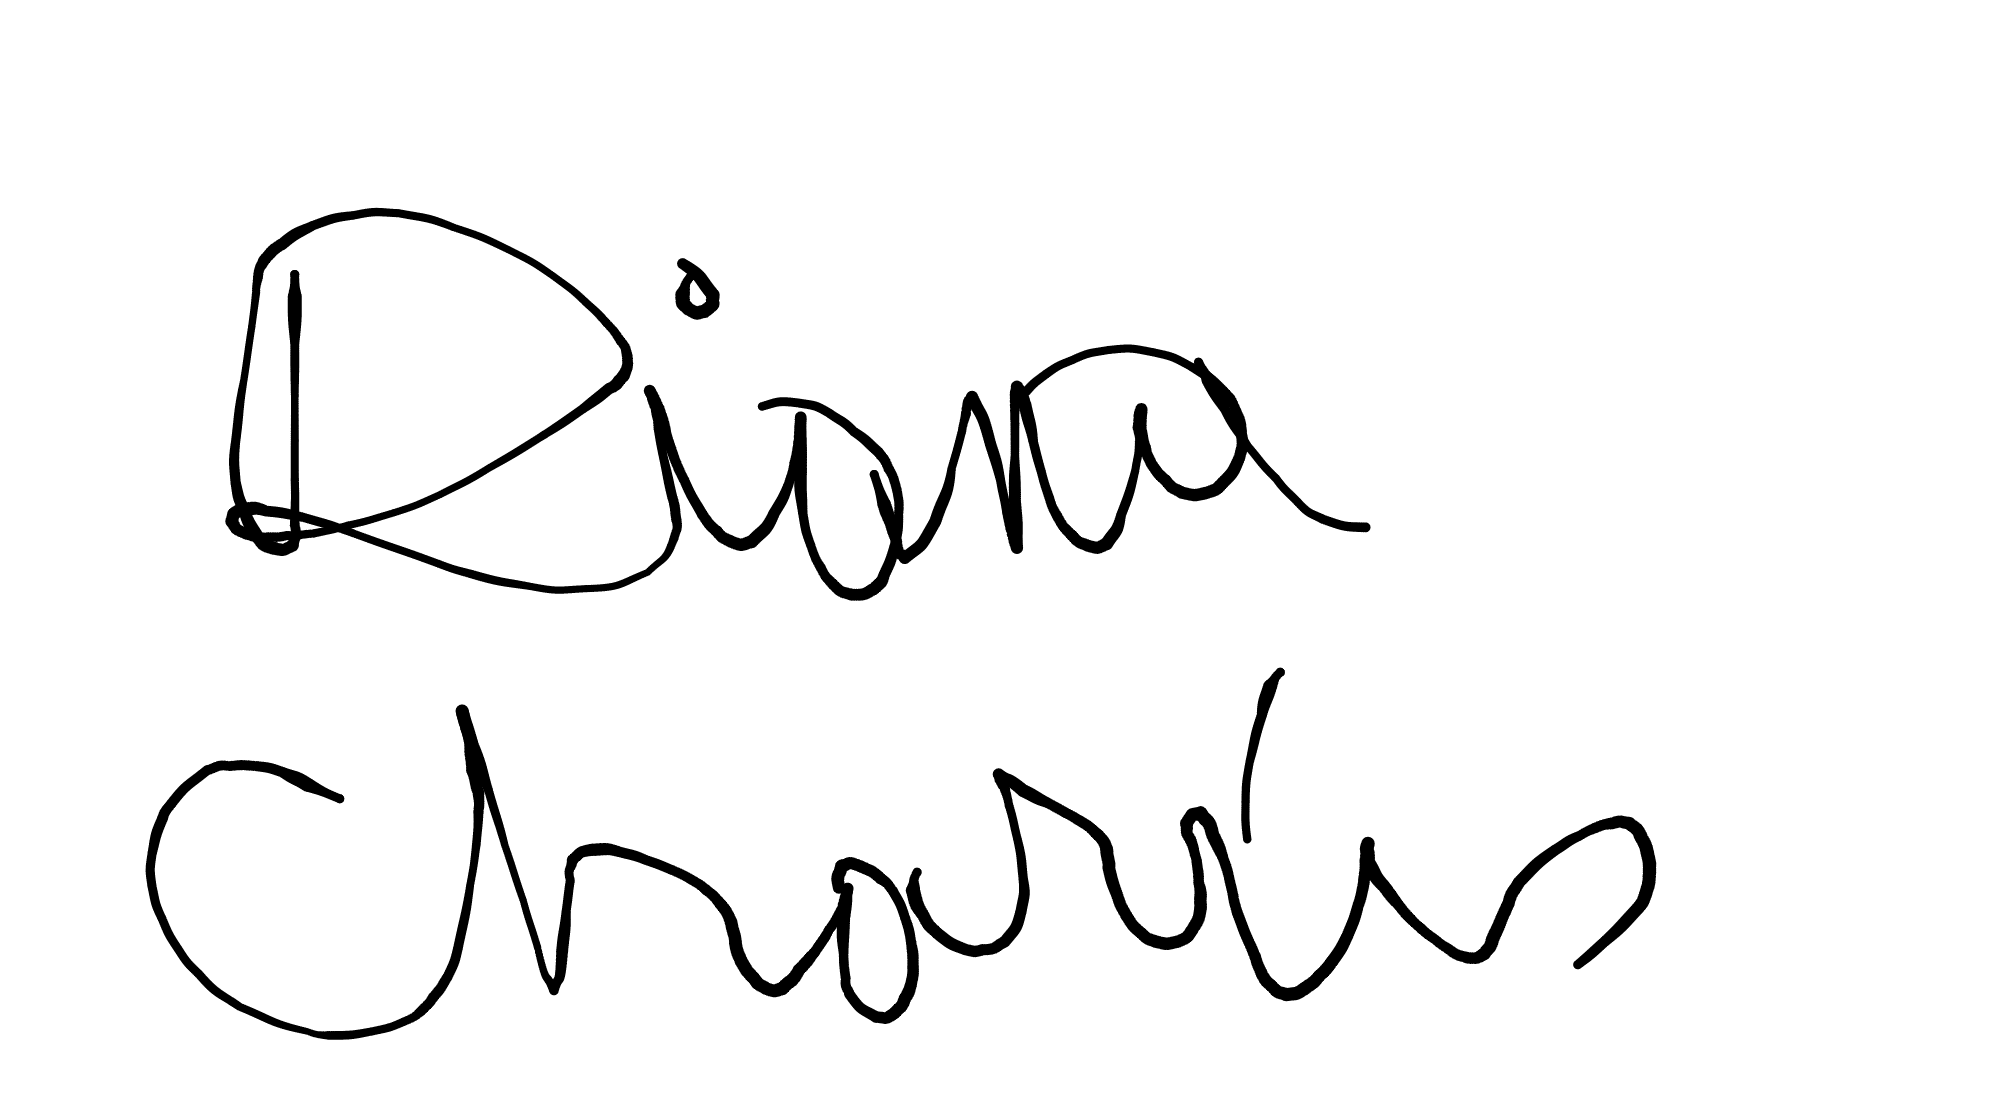 Diana
Charis